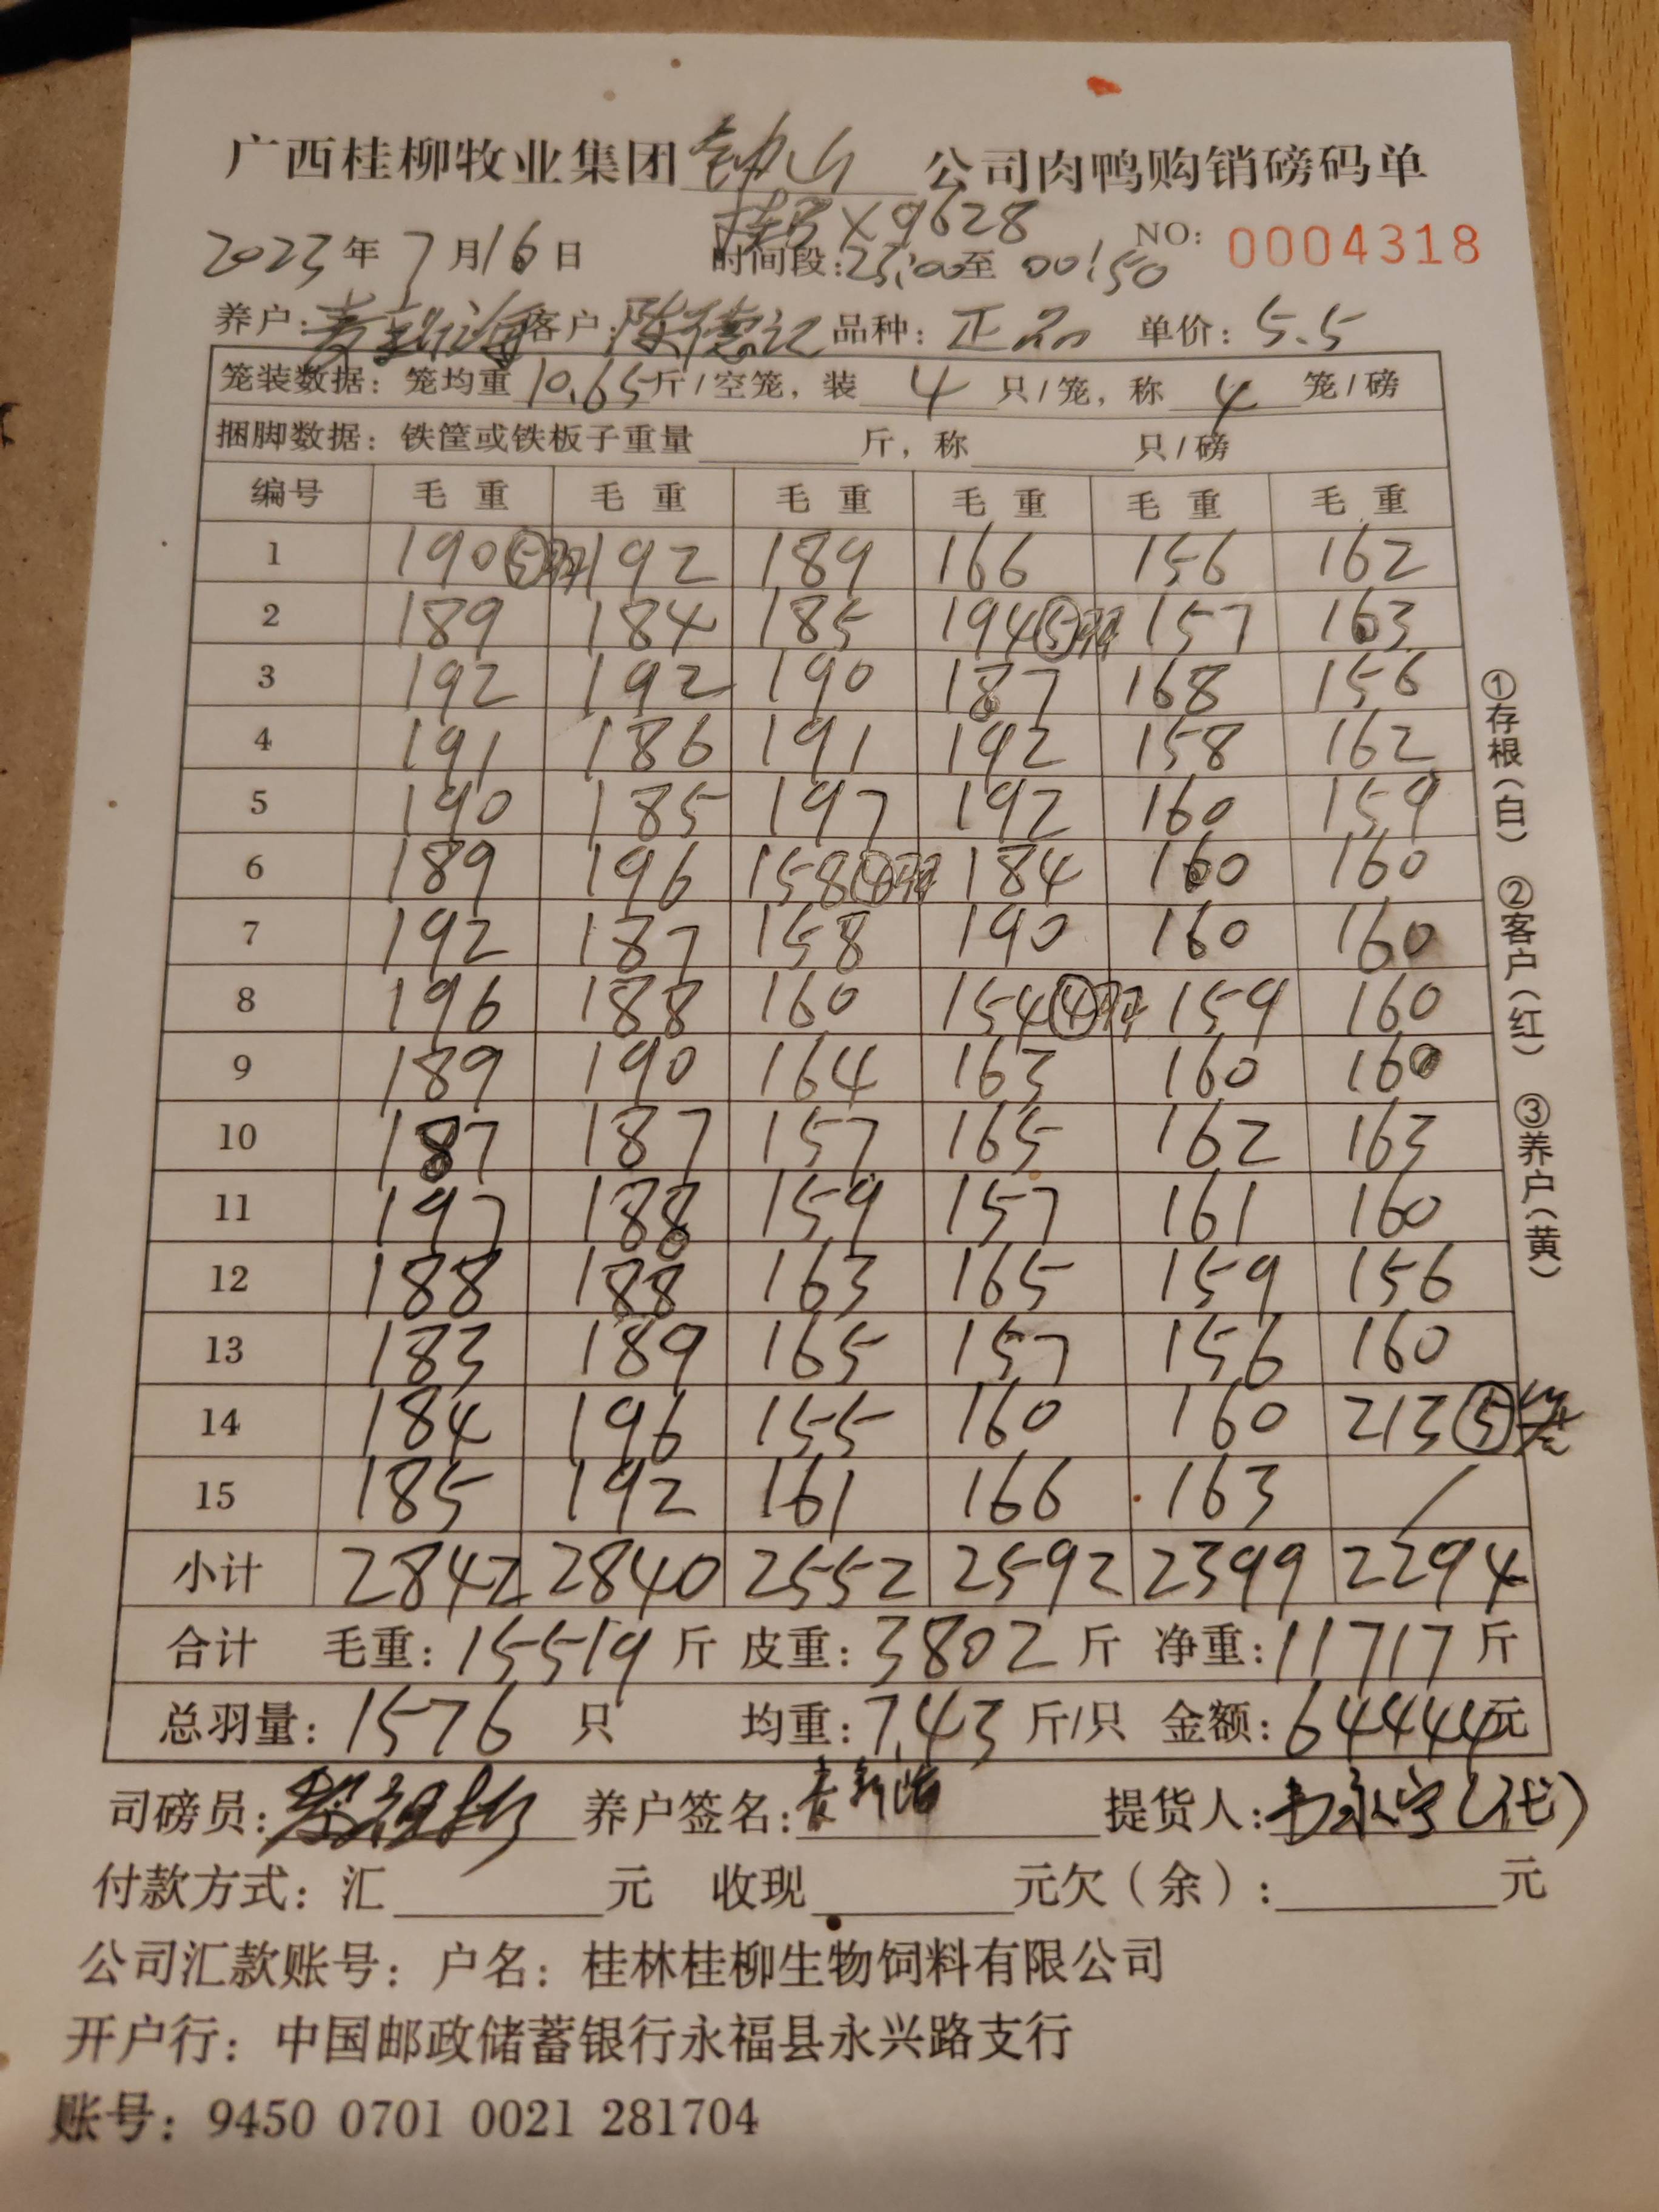 广西桂柳牧业集团 钟山 公司肉鸭购销磅码单
桂 X9628
2023年7月16日 时间段:23:00至00:50 NO: 0004318
养户: 客户:陈德记 品种:正品 单价:5.5
笼装数据:笼均重10.65斤/空笼,装4只/笼,称4笼/磅
捆脚数据:铁筐或铁板子重量 斤,称 只/磅
编号 毛重 毛重 毛重 毛重 毛重 毛重
1 190⑤只 192 189 166 156 162
2 189 184 185 194⑤只 157 163
3 192 192 190 187 168 156
4 191 186 191 192 158 162
5 190 185 197 192 160 159
6 189 196 158④只 184 160 160
7 192 187 158 190 160 160
8 196 188 160 154④只 159 160
9 189 190 164 163 160 160
10 187 187 157 165 162 163
11 197 188 159 157 161 160
12 188 188 163 165 159 156
13 183 189 165 157 156 160
14 184 196 155 160 160 213⑤笼
15 185 192 161 166 163 /
小计 2842 2840 2552 2592 2399 2294
合计 毛重:15519斤 皮重:3802斤 净重:11717斤
总羽量:1576只 均重:7.43斤/只 金额:64444元
司磅员: 养户签名: 提货人:(代)
付款方式:汇 元 收现 元欠(余): 元
公司汇款账号:户名:桂林桂柳生物饲料有限公司
开户行:中国邮政储蓄银行永福县永兴路支行
账号:9450 0701 0021 281704
①存根(白) ②客户(红) ③养户(黄)